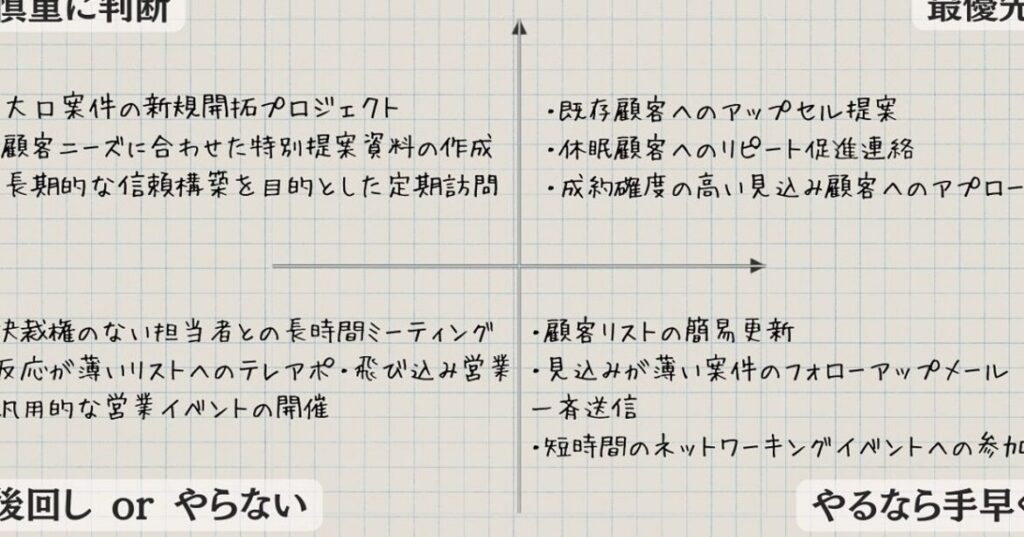 慎重に判断
最優先
大口案件の新規開拓プロジェクト
顧客ニーズに合わせた特別提案資料の作成
長期的な信頼構築を目的とした定期訪問
・既存顧客へのアップセル提案
・休眠顧客へのリピート促進連絡
・成約確度の高い見込み顧客へのアプロー
決裁権のない担当者との長時間ミーティング
反応が薄いリストへのテレアポ・飛び込み営業
汎用的な営業イベントの開催
・顧客リストの簡易更新
・見込みが薄い案件のフォローアップメール
一斉送信
・短時間のネットワーキングイベントへの参加
後回し or やらない
やるなら手早く